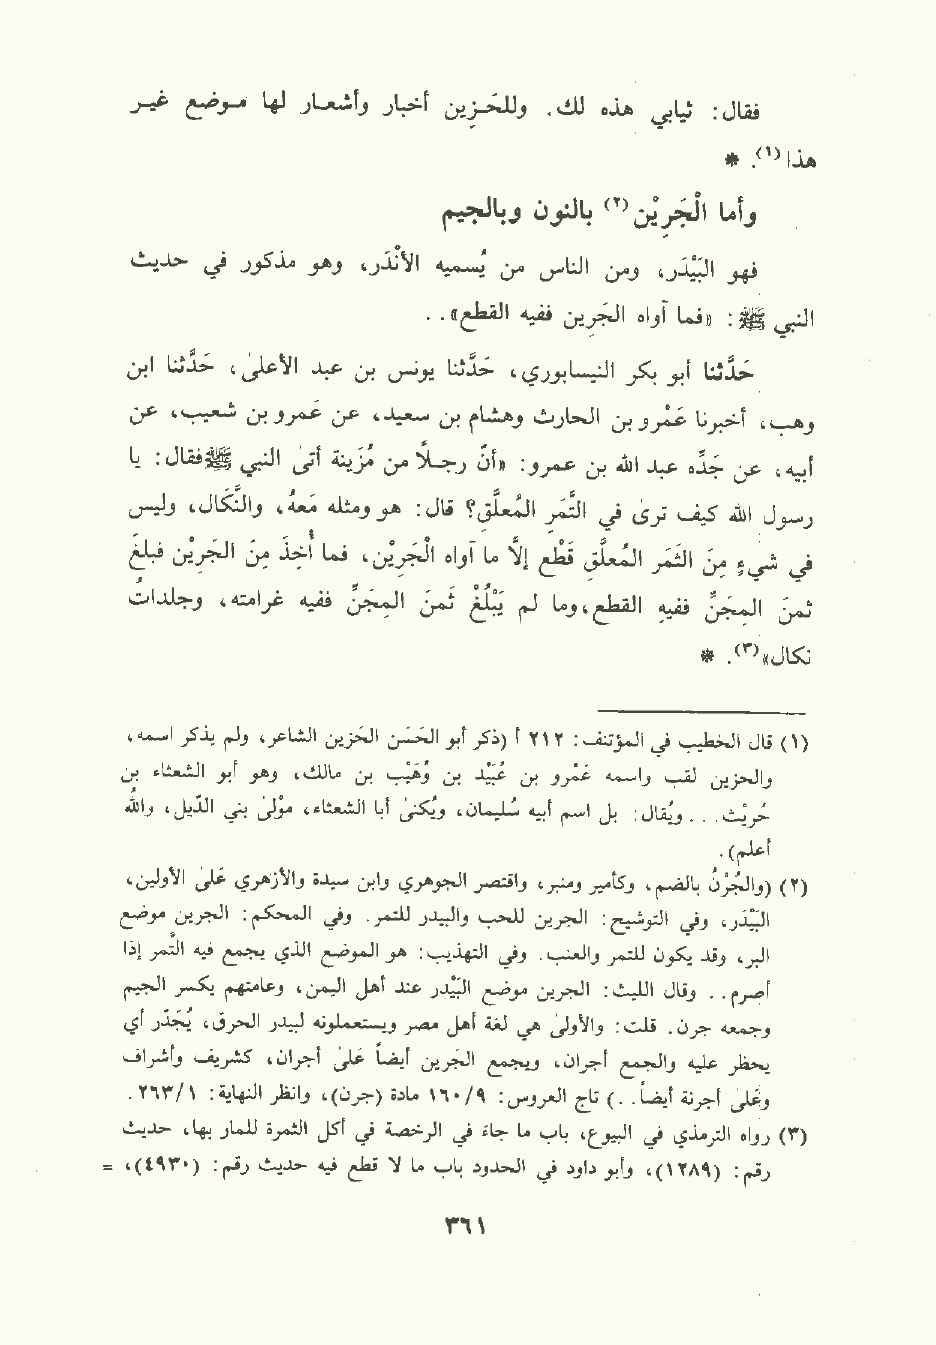 فقال: ثيابي هذه لك. وللحَزِين أخبار وأشعار لها موضع غير
هذا(١). *
وأما الْجَرِيْن(٢) بالنون وبالجيم
فهو البَيْدَر، ومن الناس من يُسميه الأنْدَر، وهو مذكور في حديث
النبي ﷺ: «فما آواه الجَرِين ففيه القطع»..
حَدَّثنا أبو بكر النيسابوري، حَدَّثنا يونس بن عبد الأعلىٰ، حَدَّثنا ابن
وهب، أخبرنا عَمْرو بن الحارث وهشام بن سعيد، عن عَمْرو بن شعيب، عن
أبيه، عن جَدّه عبد الله بن عمرو: «أنّ رجلاً من مُزَينة أتىٰ النبي ﷺ فقال: يا
رسول الله كيف ترىٰ في التَّمَر المُعلَّق؟ قال: هو ومثله مَعهُ، والنَّكَال، وليس
في شيءٍ مِنَ الثَمَر المُعلَّق قَطْع إلاَّ ما آواه الْجَرِيْن، فما أُخِذَ مِنَ الجَرِيْن فبلغَ
ثمنَ المِجَنِّ ففيهِ القطع، وما لم يَبْلُغْ ثَمنَ المِجَنِّ ففيه غرامته، وجلداتُ
نكال»(٣). *
(١) قال الخطيب في المؤتنف: ٢١٢ أ (ذكر أبو الحَسَن الحَزِين الشاعر، ولم يذكر اسمه،
والحزين لقب واسمه عَمْرو بن عُبَيْد بن وُهَيْب بن مالك، وهو أبو الشعثاء بن
حُرَيْث... ويُقال: بل اسم أبيه سُليمان، ويُكنىٰ أبا الشعثاء، مولىٰ بني الدّيل، واللهُ
أعلم).
(٢) (والجُرْنُ بالضم، وكأمير ومنبر، واقتصر الجوهري وابن سيدة والأزهري عَلىٰ الأولين،
البَيْدَر، وفي التوشيح: الجرين للحب والبيدر للتمر. وفي المحكم: الجرين موضع
البر، وقد يكون للتمر والعنب. وفي التهذيب: هو الموضع الذي يجمع فيه التَّمر إذا
أصرم.. وقال الليث: الجرين موضع البَيْدر عند أهل اليمن، وعامتهم يكسر الجيم
وجمعه جرن. قلت: والأولىٰ هي لغة أهل مصر ويستعملونه لبيدر الحرق، يُجَدَّر أي
يحظر عليه والجمع أجران، ويجمع الجَرين أيضاً عَلىٰ أجران، كشريف وأشراف
وعَلىٰ أجرنة أيضاً..) تاج العروس: ٩/ ١٦٠ مادة (جرن)، وانظر النهاية: ١/ ٢٦٣.
(٣) رواه الترمذي في البيوع، باب ما جاء في الرخصة في أكل الثمرة للمار بها، حديث
رقم: (١٢٨٩)، وأبو داود في الحدود باب ما لا قطع فيه حديث رقم: (٤٩٣٠)، =
٣٦١